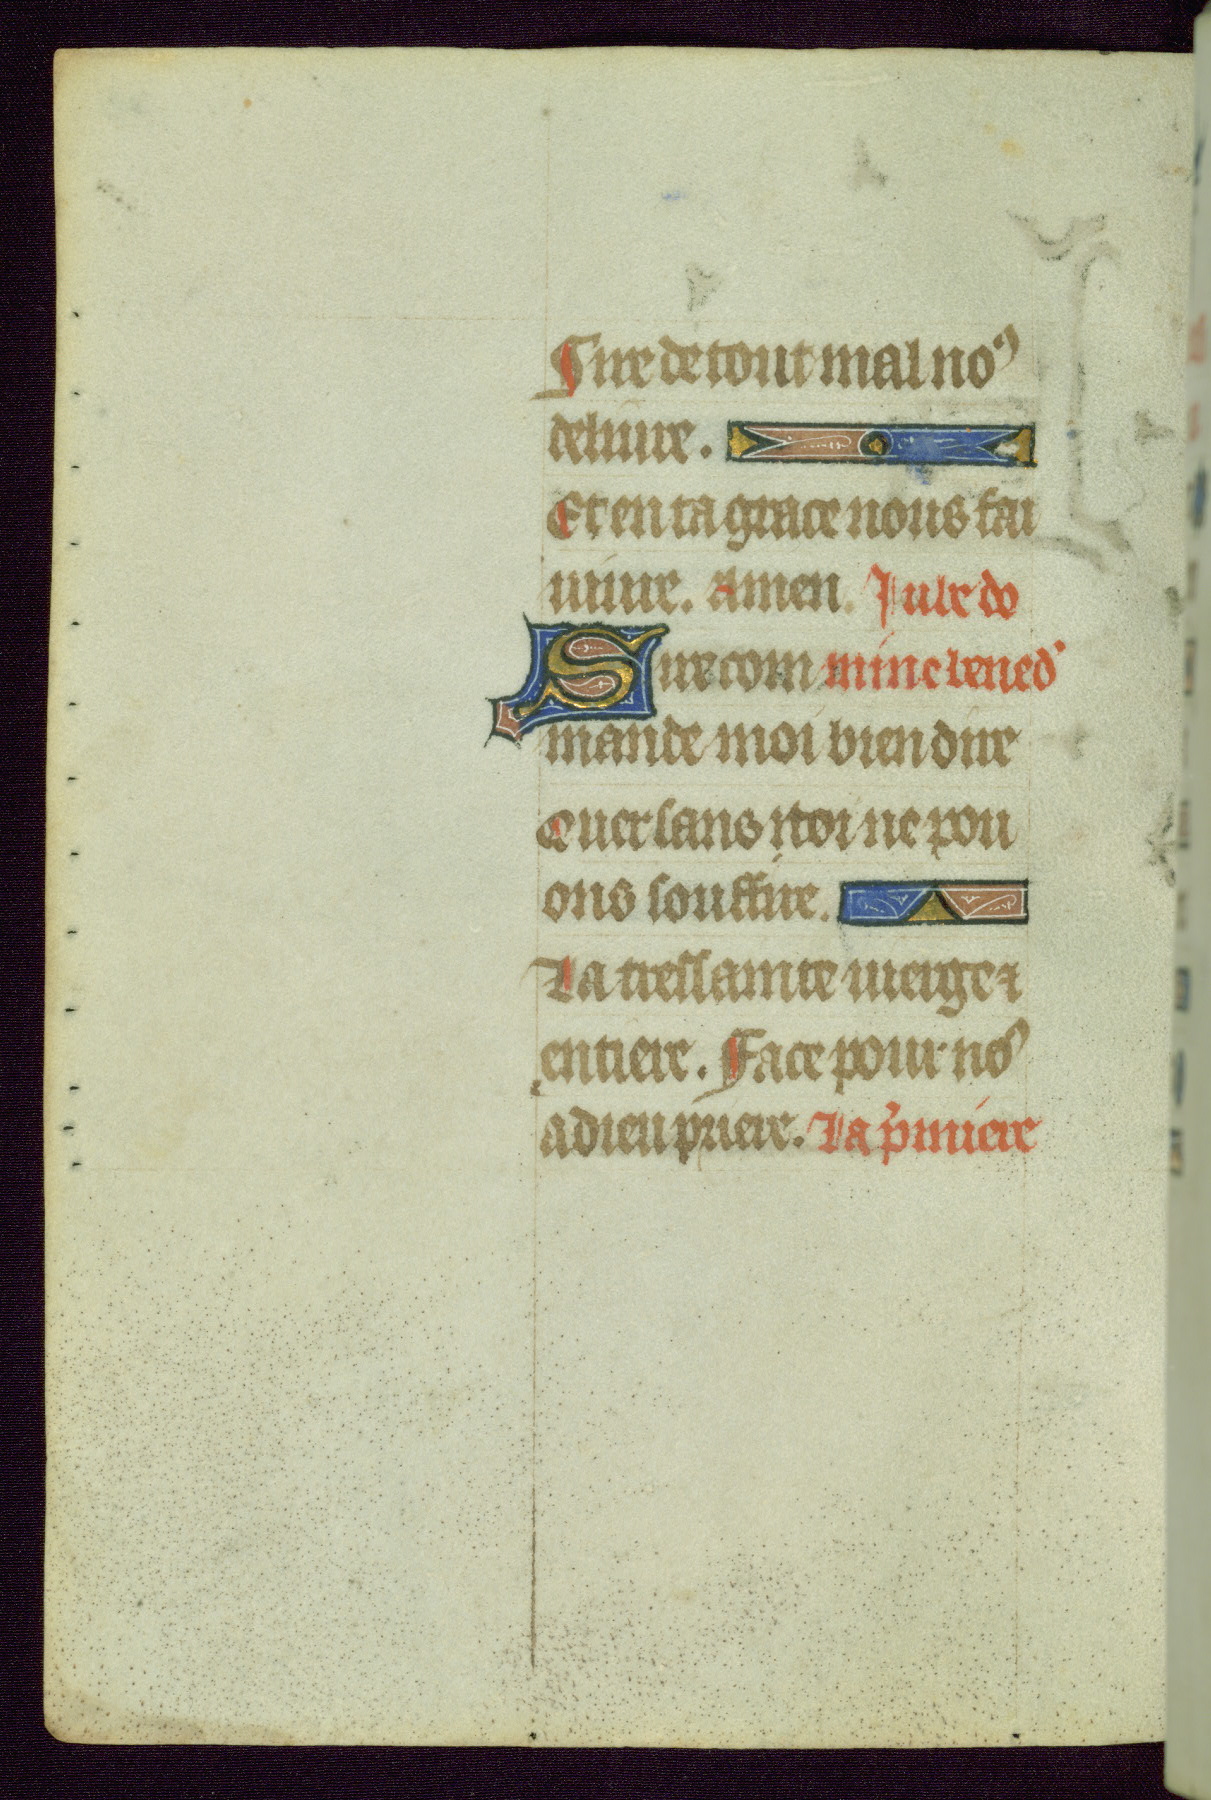 Sire de tout mal no⁹
deliure.
Et en ta grace nous fai
uiure. Amen. Jube do
Sire com mine bened'
mande moi bien dire
Quer sans toi ne pou
ons souffire.
La tressainte uierge ⁊
entiere. Face pour no⁹
a dieu priere. La p̄miere